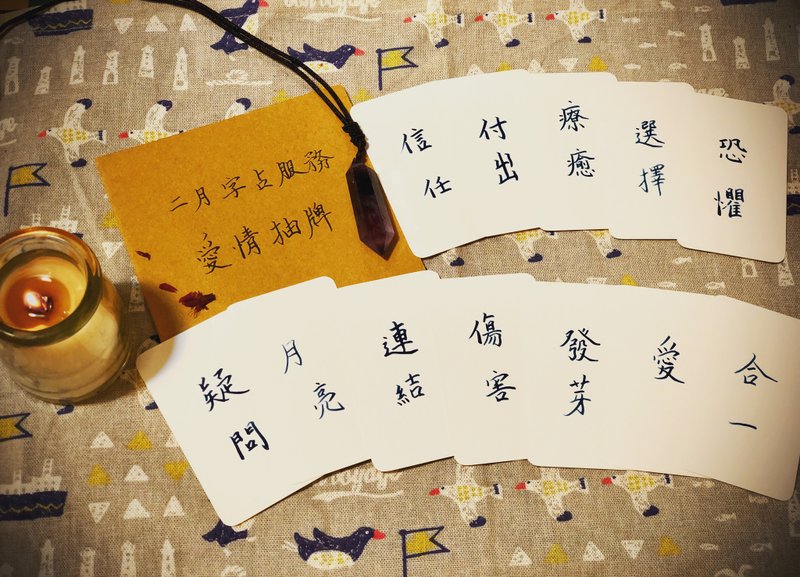 二月字占服務
愛情抽牌
信任
付出
療癒
選擇
恐懼
疑問
月亮
連結
傷害
發芽
愛
合一